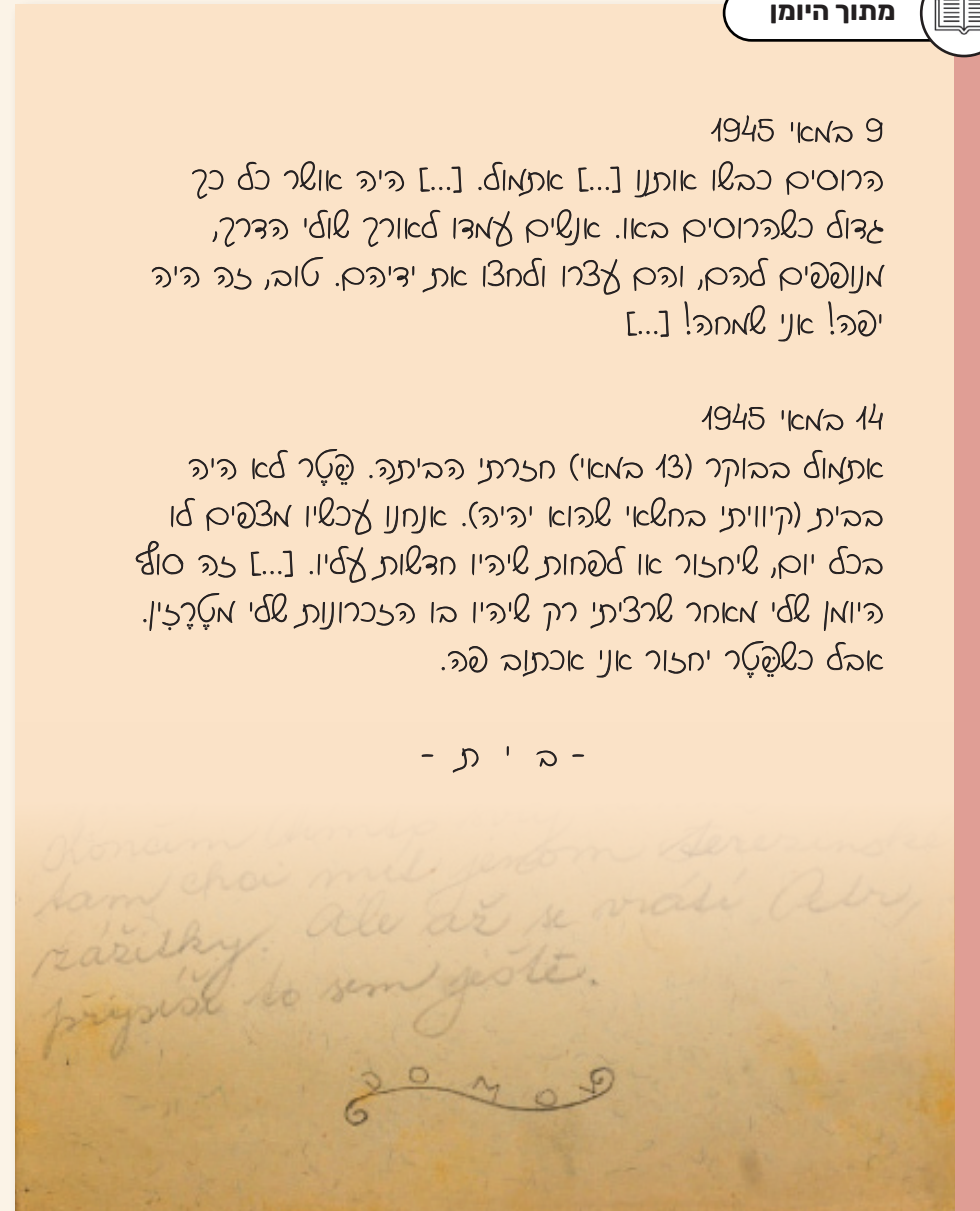 מתוך היומן
9 במאי 1945
הרוסים כבשו אותנו [...] אתמול. [...] היה אושר כל כך
גדול כשהרוסים באו. אנשים עמדו לאורך שולי הדרך,
מנופפים להם, והם עצרו ולחצו את ידיהם. טוב, זה היה
יפה! אני שמחה! [...]
14 במאי 1945
אתמול בבוקר (13 במאי) חזרתי הביתה. פֵּטֶר לא היה
בבית (קיוויתי בחשאי שהוא יהיה). אנחנו עכשיו מצפים לו
בכל יום, שיחזור או לפחות שיהיו חדשות עליו. [...] זה סוף
היומן שלי מאחר שרציתי רק שיהיו בו הזכרונות שלי מטֶרֶזִין.
אבל כשפֵּטֶר יחזור אני אכתוב פה.
- ב י ת -
tam chci mít jenom
zážitky. Ale až se vrátí Petr,
připíši to sem ještě.